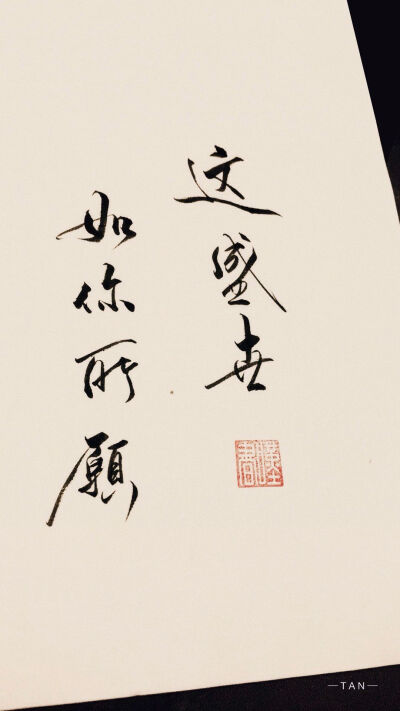 这盛世
如你所願
—TAN—